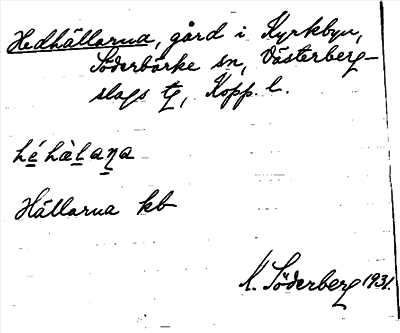 Hedhällarna, gård i Kyrkbyn,
Söderbärke sn, Västerberg-
slags tg, Kopp. l.
hé hàlana
Hällarna kb
K. Söderberg 1931.